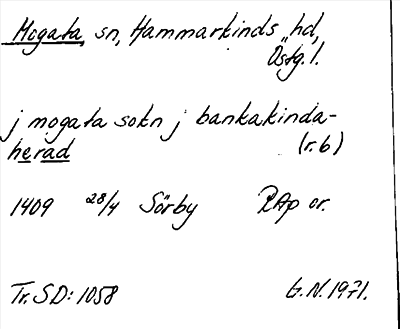 Mogata, sn, Hammarkinds hd,
Östg. l.
j mogata sokn j bankakinda-
herad (r. 6)
1409 28/4 Sörby RAp or.
Tr. SD: 1058 G.N. 1971.